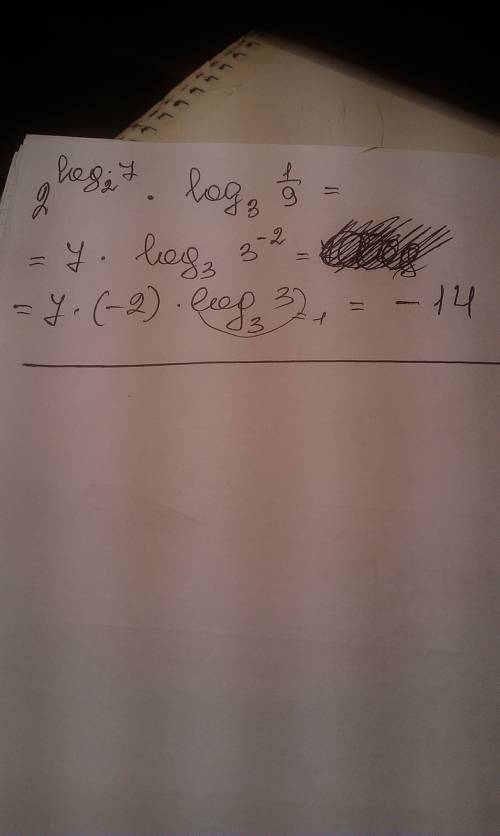 2^{log_2 7} · log_3 1/9 =
= 7 · log_3 3^{-2} =
= 7 · (-2) · log_3 3 = 1 = -14